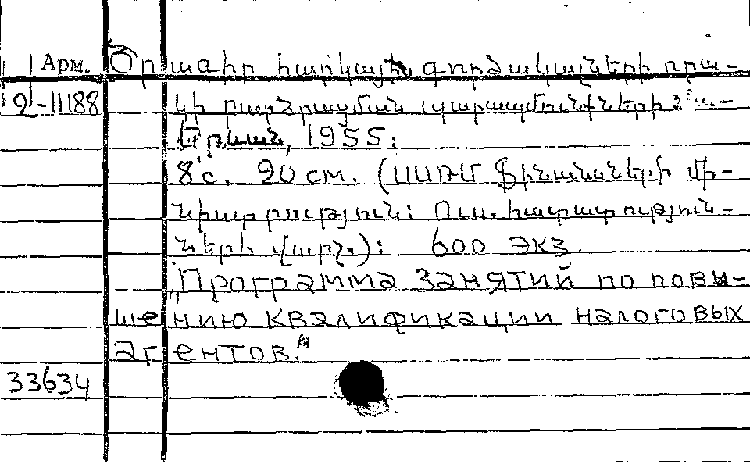 Арм. Ծրագիր հարկային գործակալների որա-
2-11188 կի բարձրացման պարապմունքների հա-
Երևան, 1955:
8 с. 20 см. (ՍՍՌՄ Ֆինանսների մի-
նիստրություն: Ուս. հաստատություն-
ների վարչ.): 600 экз.
„Программа занятий по повы-
шению квалификации налоговых
агентов."
33634